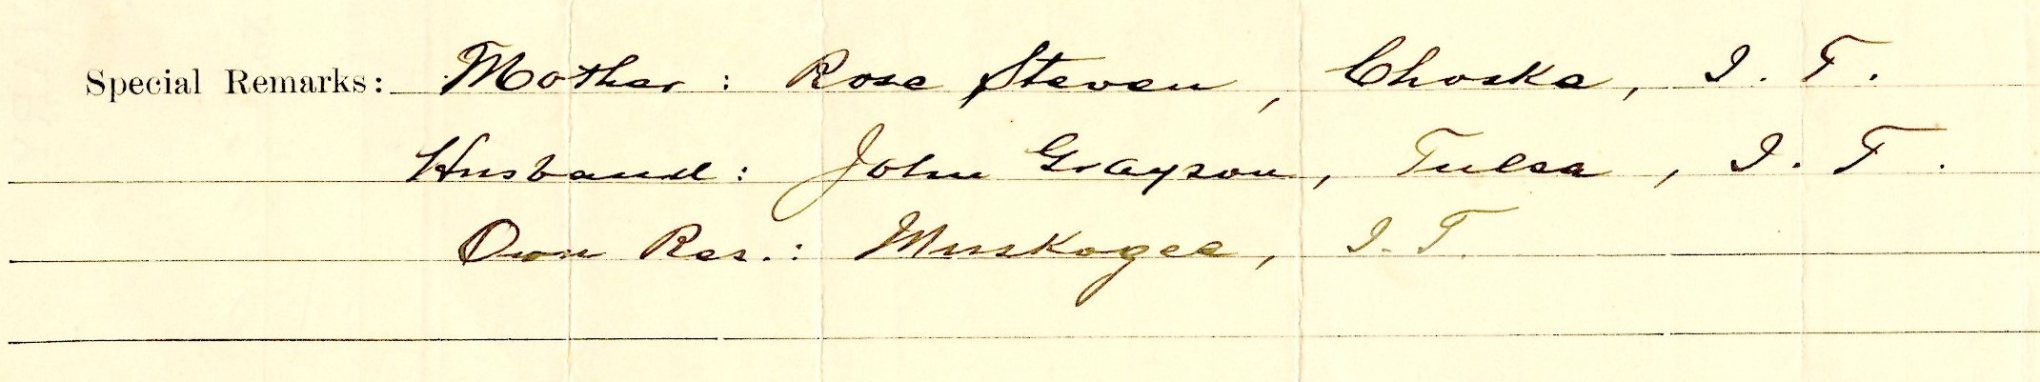 Special Remarks: Mother: Rose Steven, Choska, I. T.
Husband: John Grayson, Tulsa, I. T.
Own Res.: Muskogee, I.T.